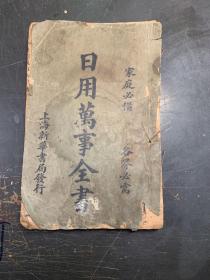 家庭必備
各界必需
日用萬事全書
上海新華書局發行